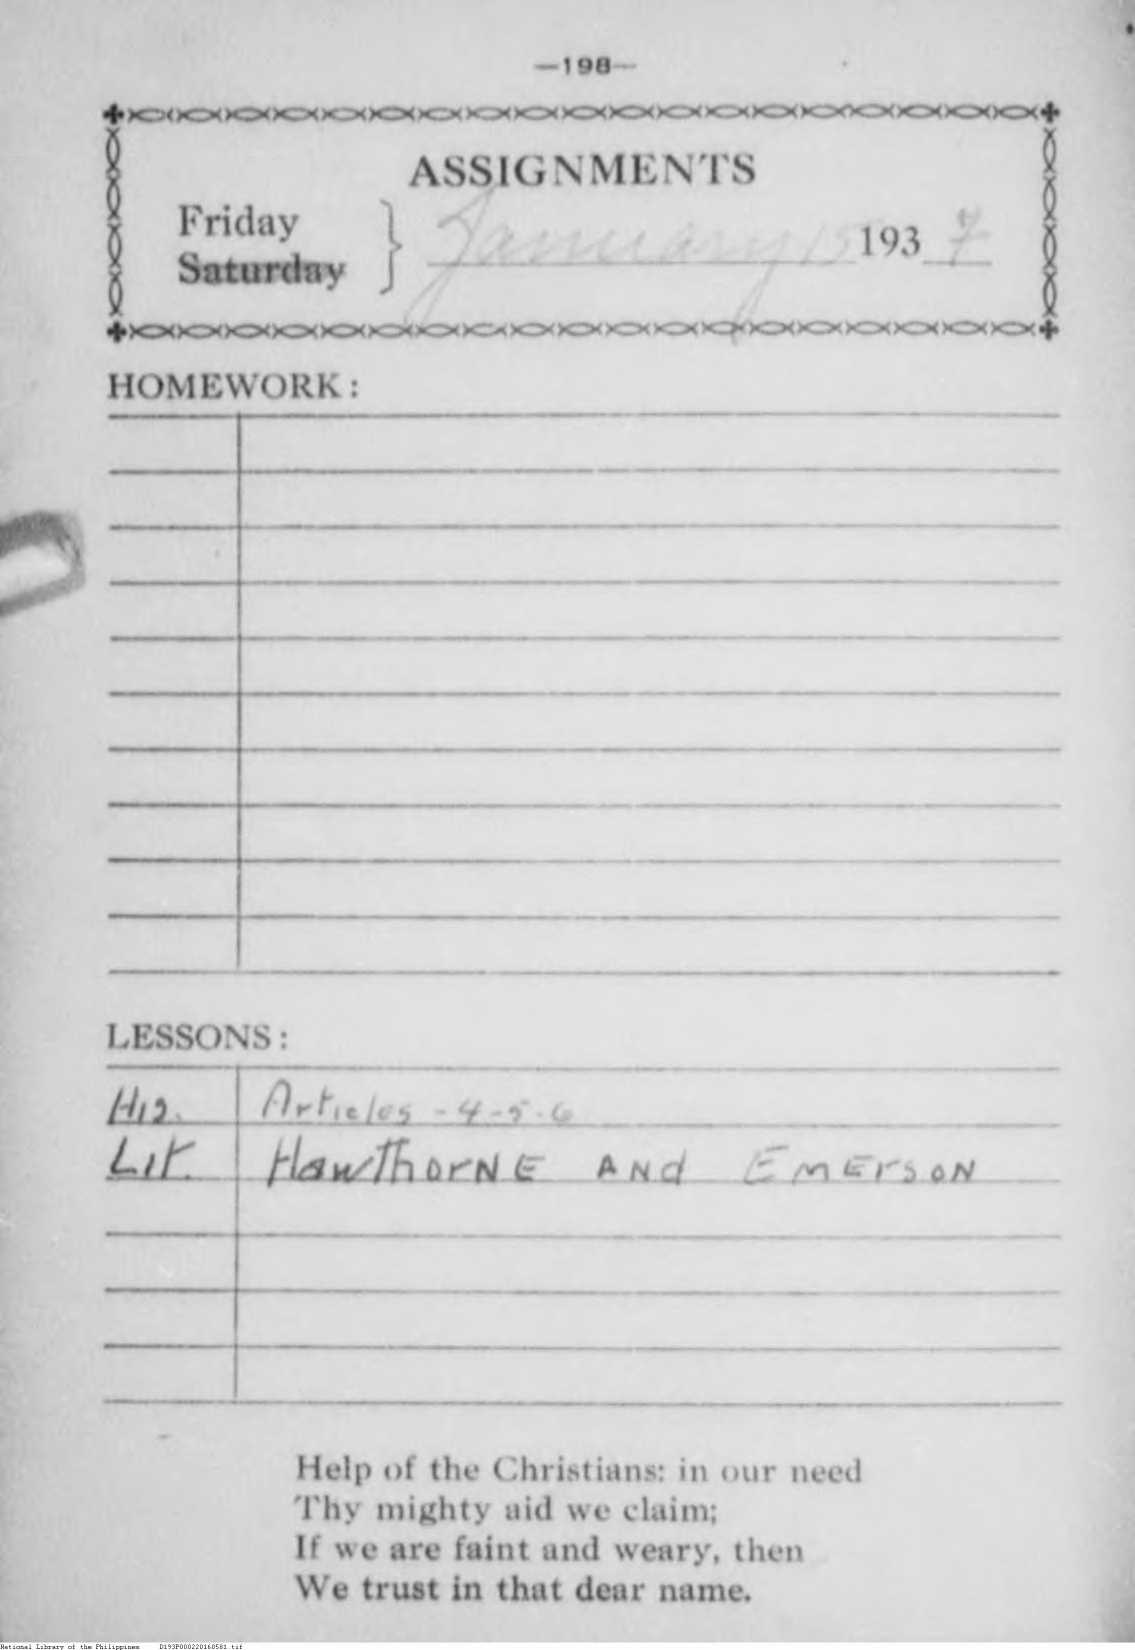 —198—
ASSIGNMENTS
Friday
Saturday
January 15 1937
HOMEWORK:
LESSONS:
His. Articles - 4 - 5 - 6
Lit. Hawthorne and Emerson
Help of the Christians: in our need
Thy mighty aid we claim;
If we are faint and weary, then
We trust in that dear name.
National Library of the Philippines D193P000220160581.tif